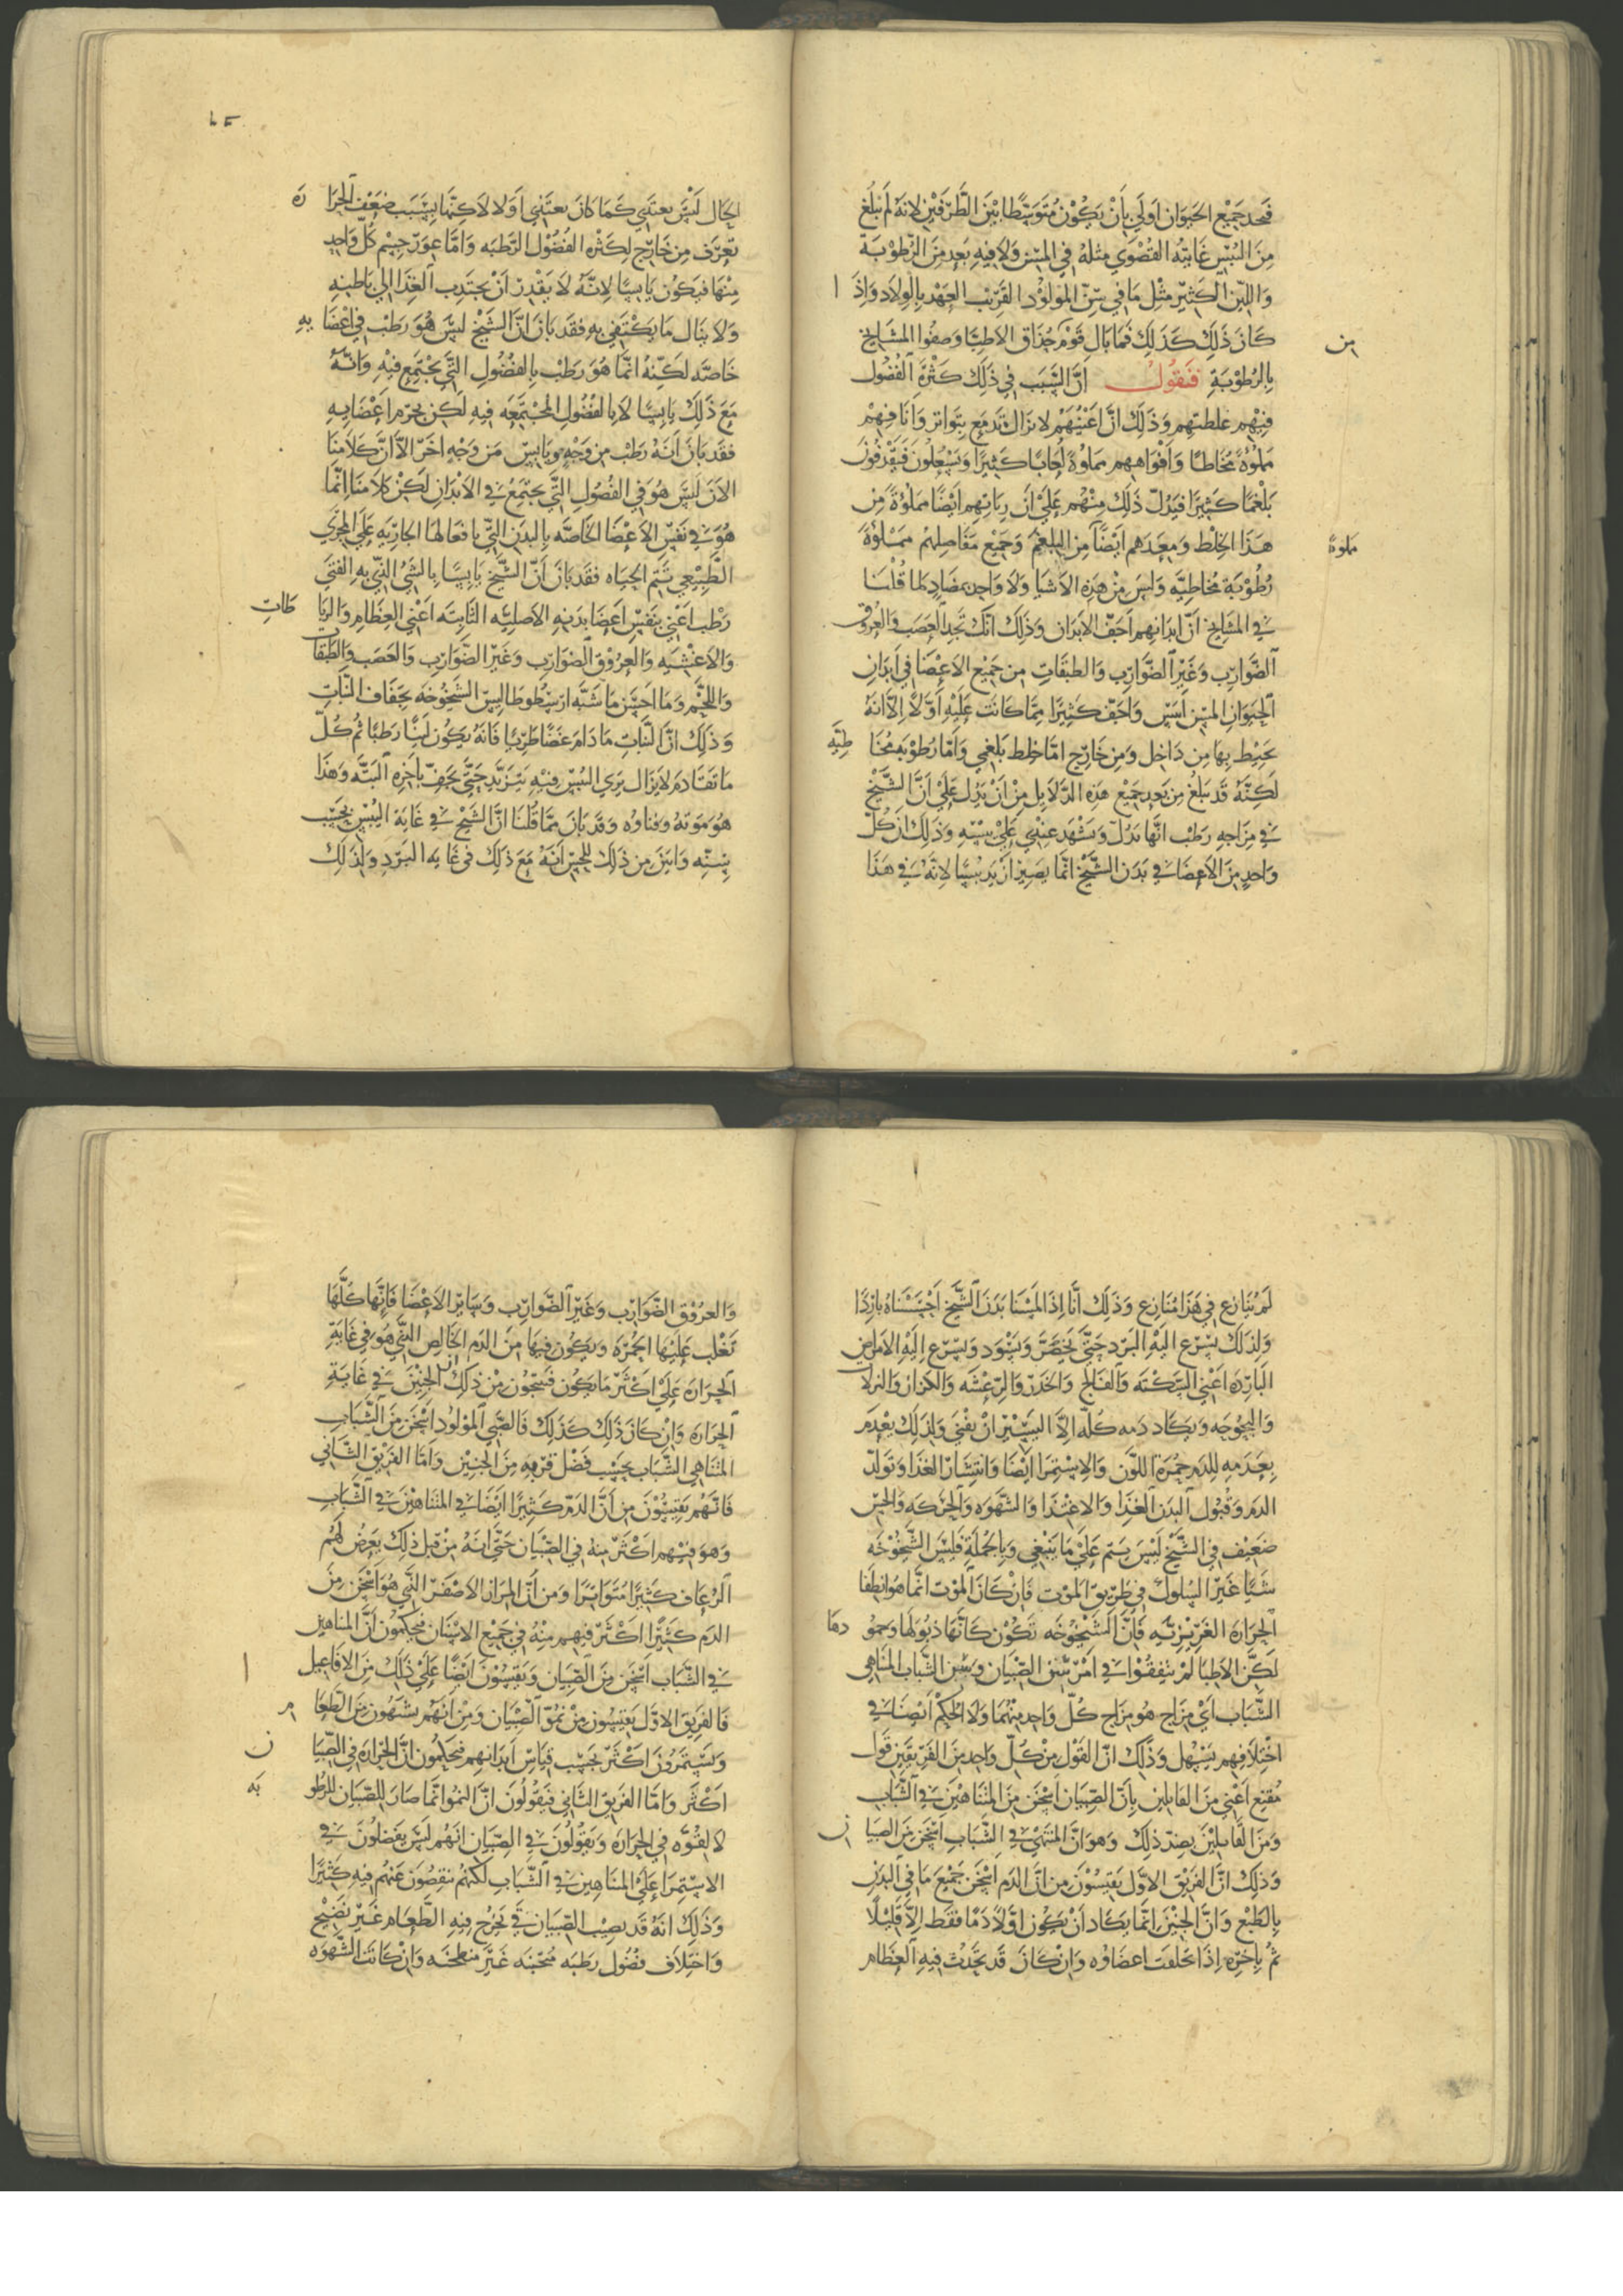 فنجد جميع الحيوان اولي بِأَنْ يَكُوْنَ مُتَوَسِّطًا بَيْنَ الطَّرَفَيْنِ لِانَّهُ لَمْ يَبْلُغ
مِنَ اليُبْسِ غَايَتِهُ القُصْوَي مثلهُ في المسِنّ وَلَا فِيهِ بَعِد مِنَ الرُّطُوْبَة
وَاللِّيْنِ الْكَثِيْرِ مِثْل مَا في سِنّ المَوْلُوْد القَرِيْب العَهْدِ بِالوِلَاد وَاِذَا
كَانَ ذَلِكَ كَذَلِكَ فَمَا بَال قَوْم مِن حُذَاق الاَطِبَّا وَصفُوا المشَايخ
بِالرُطُوْبَةِ فنَقُولُ اِنَّ السَّبَب في ذَلِكَ كَثْرَة الفُضُول
فِيْهِم غلطتهم وَذَلِكَ انَّ اعْيُنَهُمْ لَا تَزَال تَدمَع بِتَوَاتر وَانَافهم
مملُوْةٌ مُخَاطًا وَاَفْوَاههم مملوْةٌ لُعَابًا كَثِيرًا وَيَسْعلُونَ فَيَقْذِفُونَ
بَلْغمًا كَثِيرًا فيَدُلّ ذَلِكَ مِنْهُم عَلَي اَن رِيَاتهم اَيْضًا مملُوْةً مِن
هَذَا الخِلْط وَمِعَدَهم اَيْضًا مملوة مِنَ البلغم وَجَمِيْع مَفَاصِلهُم ممْلُوْةً
رُطُوْبَة مُخَاطِيَّه وَليسَ مِنْ هَذِهِ الاشيَا وَلَا وَاحِد مضَاد لما قُلْنَا
في المشَايخ انّ اَبدَانهم اَجَفّ الاَبدَان وَذَلِكَ انّكَ تَجِد العَصَب وَالعُروُق
الضَّوَارِب وَغَيْرَ الضَّوَارِب وَالطبَقَاتِ مِن جَمِيْع الاَعْضَا في اَبدَان
الحَيَوَانِ المسِن اَيبَس وَاَجَفّ كَثِيرًا مِمَّا كَانَتْ عَلَيْهِ اَوّلاً اِلّا اَنهُ
يحِيْط بِهَا مِن دَاخِل وَمِن خَارِج امّا خِلط بَلغمي وَامّا رُطُوْبه مُخَاطِيَّه
لَكِنَّهُ قَد يَبلُغ مِن بَعد جَمِيْع هَذِهِ الدَّلَايل مِنْ اَنْ يَدُل عَلَيْ اَنّ الشَّيْخ
في مِزَاجِهِ رَطْب انّهَا تَدُلّ وَتَشْهَد عِنْدِي عَلَيْ يبْسِهِ وَذَلِكَ ان كُلّ
وَاحِدٍ مِنَ الاَعِضَا في بَدَن الشَّيْخ اِنّمَا يَصِيْر اَزيَد يبْسًا لاِنَّهُ في هَذَا
الحَال لَيْسَ يغتَذِي كَمَا كَانَ يغتَذِي اَوّلا لاَكِنّهَا بِسَبَبِ ضعْف الحَرَارَه
تعرَق مِن خَارِج لِكَثرَه الفُضُوْل الرّطبَه وَامّا غور جِسْم كُلّ وَاحِدٍ
مِنْهَا فَيَكُوْن يَابِسًا لِانّهُ لَا يَقْدِر اَنْ يجتَذِب الغِذَا الي بَاطِنِهِ
وَلَا ينَال مَا يَكْتَفِي بِهِ فقَد بَانَ اَنّ الشّيْخ ليسَ هُوَ رَطْب في اعْضَايهِ
خَاصّه لَكِنّهُ انّمَا هُوَ رَطْب بِالفُضُولِ التّي تجْتَمِع فِيْهِ وَانّهُ
مَعَ ذَلِكَ يَابِسًا لَا بِالفُضُولِ المُجتمعَه فيهِ لَكِن بجرم اعْضَايهِ
فقَد بَانَ اَنهُ رَطْب مِن وَجْهٍ وَيَابِس مِن وَجْهٍ اخَر الّا اَنّ كلَامنَا
الاَنَ لَيسَ هُوَ في الفُضُولِ التّي تجتمِعُ في الاَبدَانِ لَكِن كلَامنَا انّمَا
هُوَ في نَفسِ الاَعْضَا الخَاصّه بِالبَدَنِ التّي بِافعَالهَا الجارِيَه عَلَي المجرَي
الطّبيْعي تَتِم الحَيَاه فقَد بَانَ اَنّ الشّيْخ يَابِسًا بِالشيْ الذّي بهِ الفتيَ
رَطْب اَعْني بِنَفسِ اَعضَا بَدنهِ الاَصليّه الثّابته اعْني العِظَامِ وَالرّبَاطَات
وَالاَغْشيَه وَالعُرُوْقِ الضّوَارب وَغَير الضّوَارب وَالعَصَب وَالطّبَقَات
وَاللحْم وَمَا احسَن مَا شَبّه ارسْطُوطَالِيس الشّيخُوخَه بِجفَافِ النّبَاتِ
وَذَلِكَ انّ النّبَات مَا دَامَ غضًّا طَرِيًّا فَانّهُ يكُون ليّنًا رَطبًا ثُم كُلّ
مَا تقَادَم لَا يَزَال يُرَي اليُبْس فيْهِ يَتزيّد حتّي يجفّ باخرِهِ البَتّه وَهذَا
هُوَ مَوته وفنَاوُه وَقَد بَانَ ممّا قُلنَا انّ الشّيْخ في غَايَه اليُبْسِ بحَسَب
سِنّه وَابيَن مِن ذَلِكَ للحِسّ اَنّهُ مَعَ ذَلِكَ في غَايَه البَرْدِ وَلِذَلِكَ
لَمْ يُنَازِع في هَذَا مُنَازِع وَذَلِكَ اَنّا اِذَا لمَسْنَا بَدَنَ الشّيْخ اَحْسَسْنَاهُ بَارِدًا
وَلِذَلِكَ يسْرِع اليْهِ البَرْد حَتّي يَخضَرّ وَيَسْوَد وَتسْرع اِليْهِ الاَمرَاض
البَارِدَه اعْني السّكْتَه وَالفَالج وَالخدَر وَالرّعْشَه وَالكزَاز وَالنزلَات
وَالبحُوحَه وَيَكَاد دَمه كُلّه الّا اليَسِيْر اَنْ يفْني وَلِذَلِكَ يعْدَم
بِعَدَمِهِ للِدَم حُمرَة اللّوْن وَالاِسْتِمرَا ايْضًا وَانتِشَار الغذَا وَتَولّد
الدم وَقُبُول البَدَن الغِذَا وَالاغْتِذَا وَالشّهْوَه وَالحَرَكَه وَالحِسّ
ضَعِيْف في الشّيْخ لَيْسَ يَتم عَلَي مَا يَنْبَغي وَبِالجُمْلَة فَليسَ الشّيْخُوْخَه
شَيًّا غَيْرَ السُلوك في طَرِيق المَوْت فَاِنْ كَانَ الموْت انّمَا هُوَ انطفا
الحَرَارَه الغَرِيزِيّه فَاِنّ الشَيْخُوْخَه تَكُوْن كَانّهَا ذُبُولهَا وَخمُودهَا
لَكِنّ الاَطِبّا لَمْ يَتّفِقُوا في امْر سِن الصّبيَان وَسِن الشّبَاب المتنَاهي
الشّبَاب اَيْ مِزَاج هُوَ مزَاج كُلّ وَاحِدٍ مِنْهُمَا وَلَا الحُكْمُ اَيضًا في
اخْتِلَافِهم بِسَهْل وَذَلِكَ انّ القَوْل مِنْ كُلّ وَاحِد مِنَ الفَرِيقَيْنِ قَوْل
مُقنِع اَعْني مِنَ القَايلينَ بِاَنّ الصِّبيَان اسْخَن مِنَ المتنَاهِيْنَ في الشّبَاب
وَمِنَ القَايليْنَ بضِدّ ذلِكَ وَهوَ اَنّ المُنتَهي في الشّبَابِ اسْخَن مِنَ الصّبيَان
وَذلِكَ انّ الفَرِيْق الاوّل يَقيسُوْنَ مِن انّ الدّم اسْخَن جَمِيْع مَا في البَدَنِ
بِالطَبْع وَانّ الجَنِيْن اِنّمَا يَكَاد اَنْ يَكُون اوّلًا دَمًا فقَط اِلّا قَليْلًا
ثُمّ بِاَخرَه اِذَا تخَلقَت اعضَاوُه وَاِنْ كَانَ قَد تحَدُث فيهِ العظَام
وَالعُروْق الضّوَارِب وَغَيْر الضّوَارِب وَسَاير الاَعْضَا فَاِنّهَا كُلّهَا
تَغْلِب عَلَيْهَا الحُمْرَه وَيَكُوْن فيهَا مِنَ الدّم الخَالِص الذّي هُوَ في غَايَةِ
الحَرَارَه عَلَي اكْثَر مَا يكُون فَيَجِبُوْن مِنْ ذَلِكَ ان الجَنيْن في غَايَة
الحَرَارَه وَاِنْ كَانَ ذَلِكَ كَذَلِكَ فَالصّبي المَوْلُوْد اسْخَن مِنَ الشّبَابِ
المتنَاهي الشّبَاب بحَسَب فَضْل قرْبهِ مِنَ الجَنِيْن وَامّا الفَرِيق الثّاني
فَانّهُمْ يَقيسُوْنَ مِن انّ الدّم كَثيْرًا ايضًا في المتنَاهيْنَ في الشّبَابِ
وَهوَ فيْهِم اكْثَر مِنهُ في الصّبيَان حَتّي انّهُ مِنْ قِبَل ذَلِكَ يَعرُض لَهُمْ
الرُعَاف كَثيْرًا مُتَوَاتِرًا وَمِن اَنّ المِرَار الاَصْفَر الذّي هُوَ اسْخَن مِنَ
الدَم كَثِيْرًا اكْثَر فيهم مِنْهُ في جَميْع الاسْنَان فيَحكُمُوْن اَنّ المتنَاهين
في الشّبَاب اسْخَن مِنَ الصّبيَان وَيَقيسُوْنَ ايْضًا عَلَي ذَلِكَ مِنَ الافَاعِيل
فَالفَرِيق الاوّل يَقيسُون مِنْ نمُوّ الصّبيَان وَمِنْ اَنّهُم يَشتَهُوْن مِنَ الطّعَام
وَيَسْتمرُوْن اكْثَر بحَسَب قيَاسِ اَبْدَانهم فيَحكُمُون انّ الحَرَارَه في الصّبيَان
اكْثَر وَامّا الفَرِيق الثّاني فَيَقُوْلُونَ انّ النمُوّ انّمَا صَارَ للِصّبيَان للرّطُوبَه
لَا لقُوّه في الحَرَارَه وَيَقُوْلُونَ في الصّبيَان انّهُم ليْسَ يَفضلُونَ في
الاسْتِمرَا عَلَي المتنَاهين في الشّبَاب لَكنّهم يَنقصُوْن عَنْهُم فيهِ كَثيْرًا
وَذَلِكَ انّهُ قَد يصِيب الصّبيَان قَي يَخرُج فيهِ الطّعَام غَيْر نَضِيْج
وَاختِلَاف فضُول رطبَه غَيْر وَاِنْ كَانَت الشّهْوَه